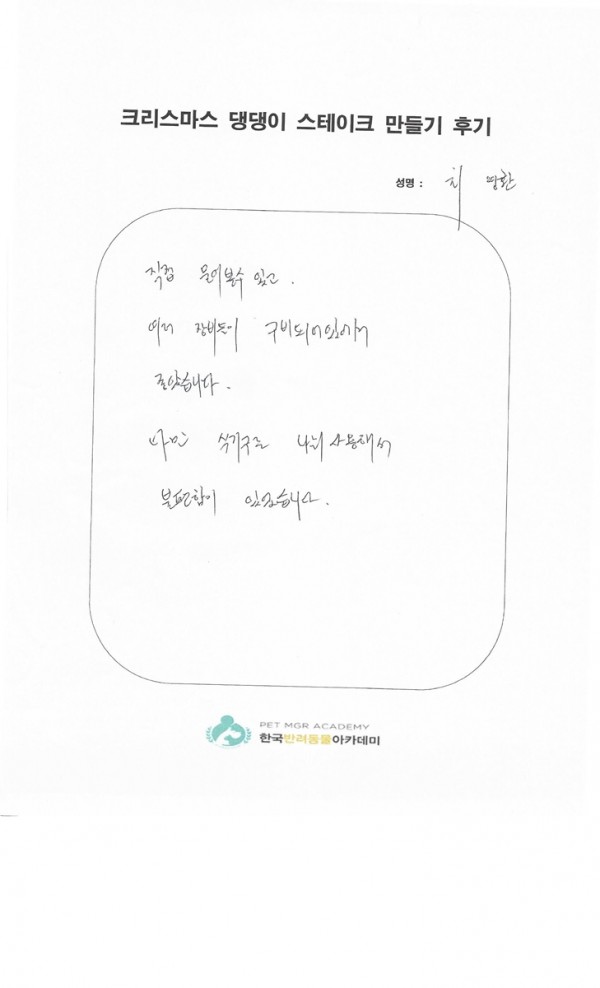 크리스마스 댕댕이 스테이크 만들기 후기
성명 : 최
직접 물어볼수 있고.
여러 장비들이 구비되어있어서
좋았습니다.
다만 식기구를 나눠 사용해서
불편함이 있었습니다.
PET MGR ACADEMY
한국반려동물아카데미